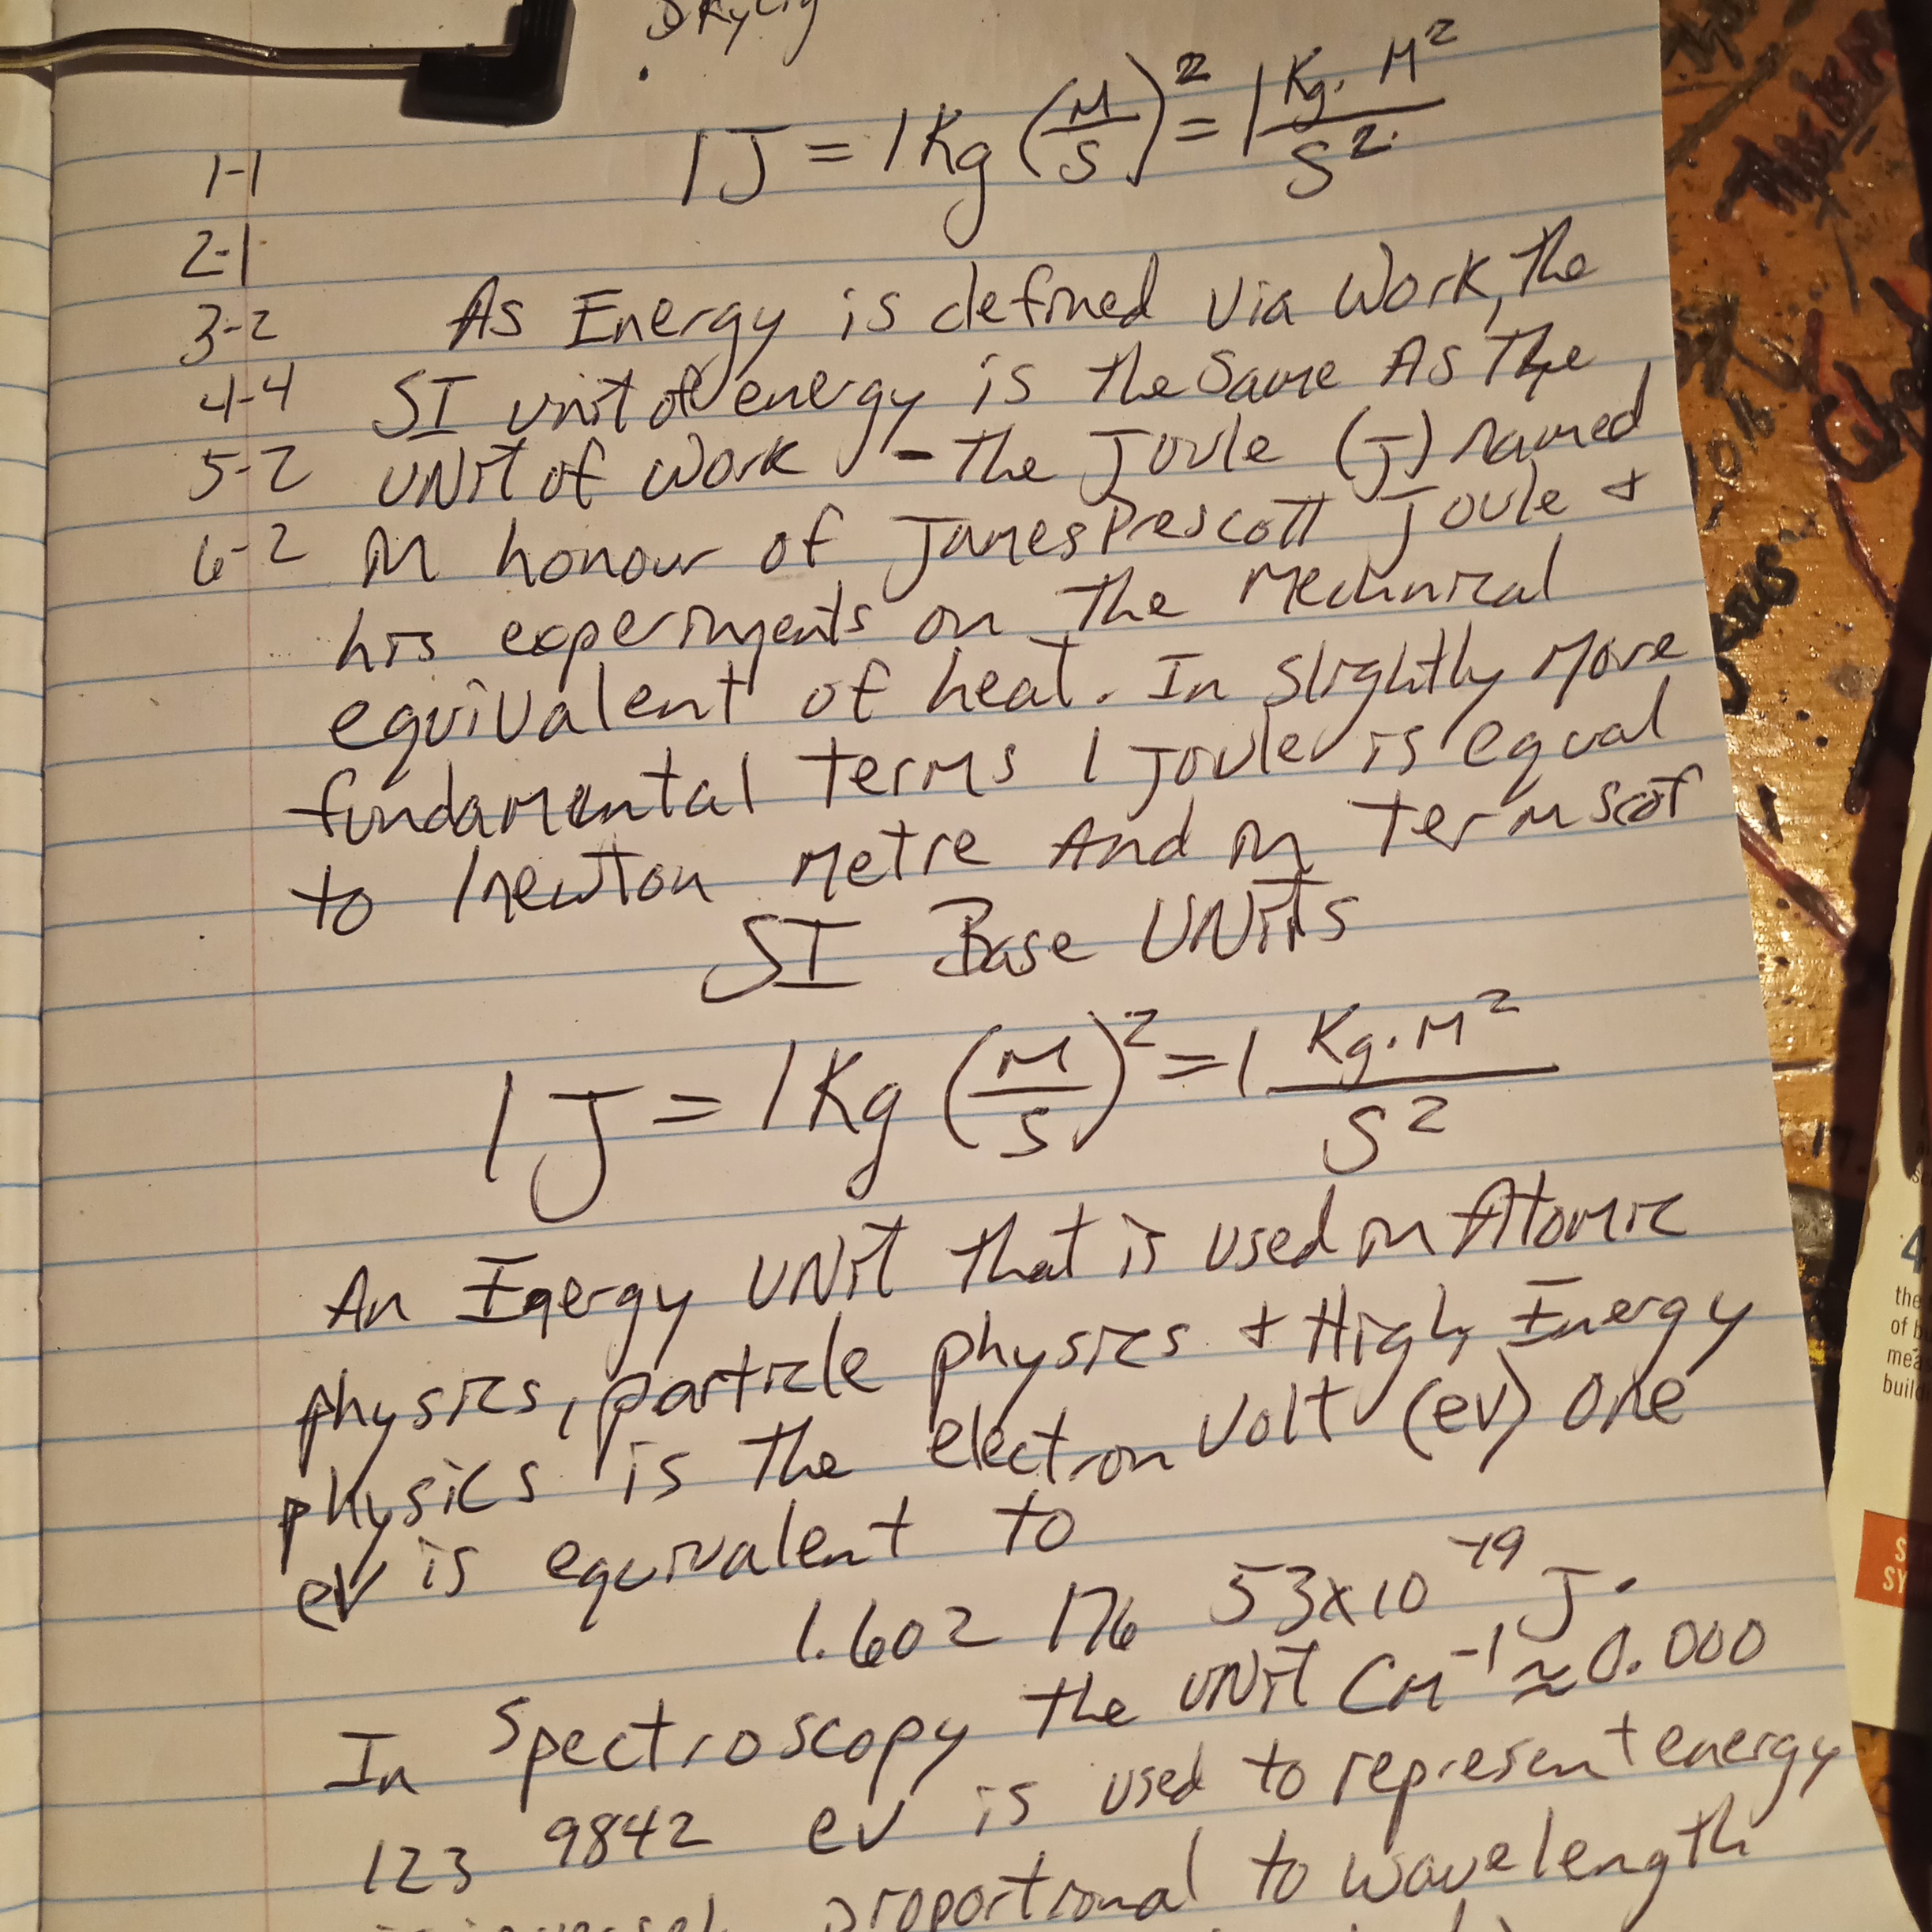 1 J = 1 Kg (M/S)² = 1 Kg. M²/S²
1-1
2-1
3-2
4-4
5-2
6-2
As Energy is defined via Work, the
SI unit of energy is the same As The
UNIT of work - the Joule (J) named
in honour of James Prescott Joule +
his experiments on the Mechnical
equivalent of heat. In slightly More
fundamental terms 1 Joule is equal
to 1 newton Metre And in terms of
SI Base UNITS
1 J = 1 Kg (M/S)² = 1 Kg. M²/S²
An Energy UNIT that is used in Atomic
physics, particle physics + High Energy
physics is the electron volt (ev) one
eV is equivalent to
1.602 176 53x10⁻¹⁹ J.
In spectroscopy the UNIT CM⁻¹ ≈ 0.000
123 9842 eV is used to represent energy
proportional to wavelength
4
the
of
mea
buil
S
SY